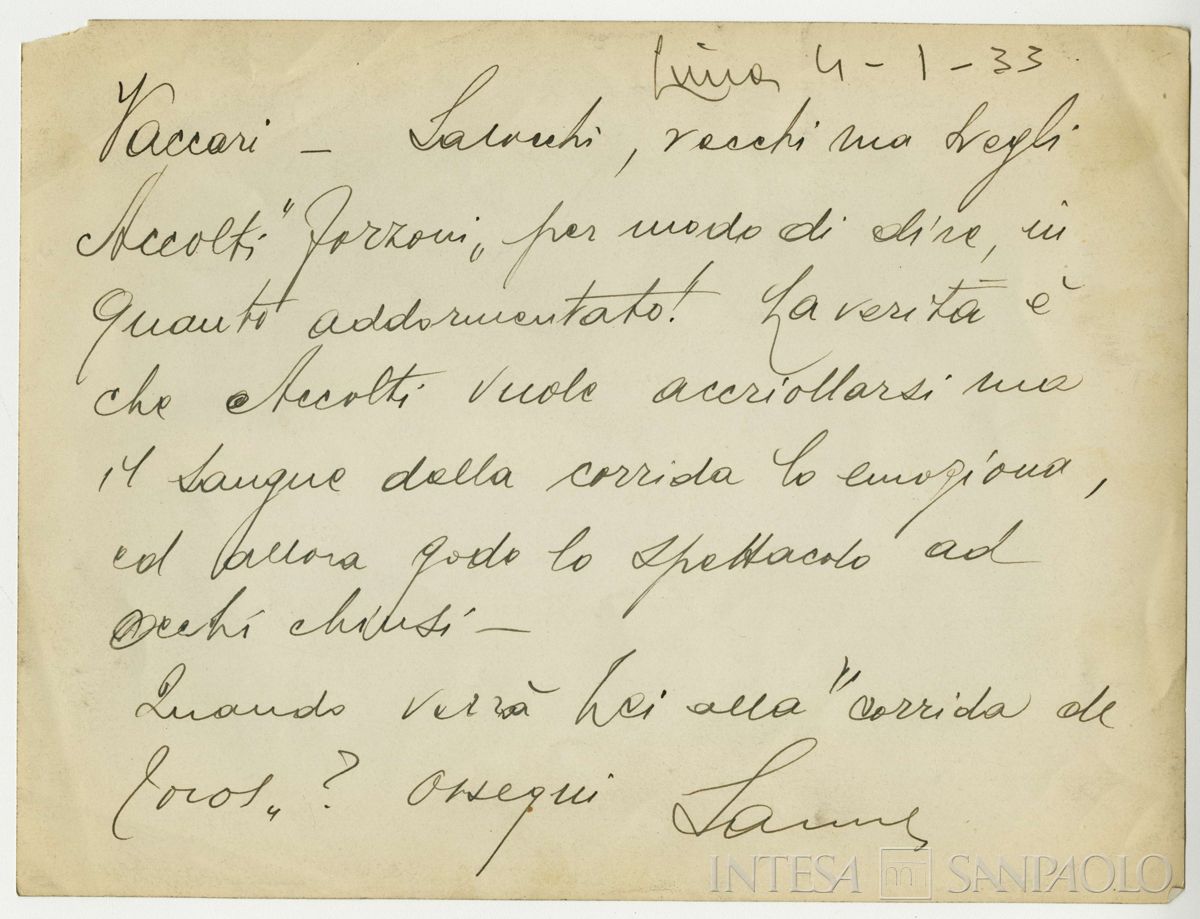 Lima 4-1-33
Vaccari – Salocchi, vecchi ma svegli
Accolti "Forzoni„ per modo di dire, in
quanto addormentato! La verità è
che Accolti vuole accriollarsi ma
il sangue della corrida lo emoziona,
ed allora gode lo spettacolo ad
occhi chiusi –
Quando verrà Lei alla "corrida de
toros„? Ossequi
INTESA SANPAOLO